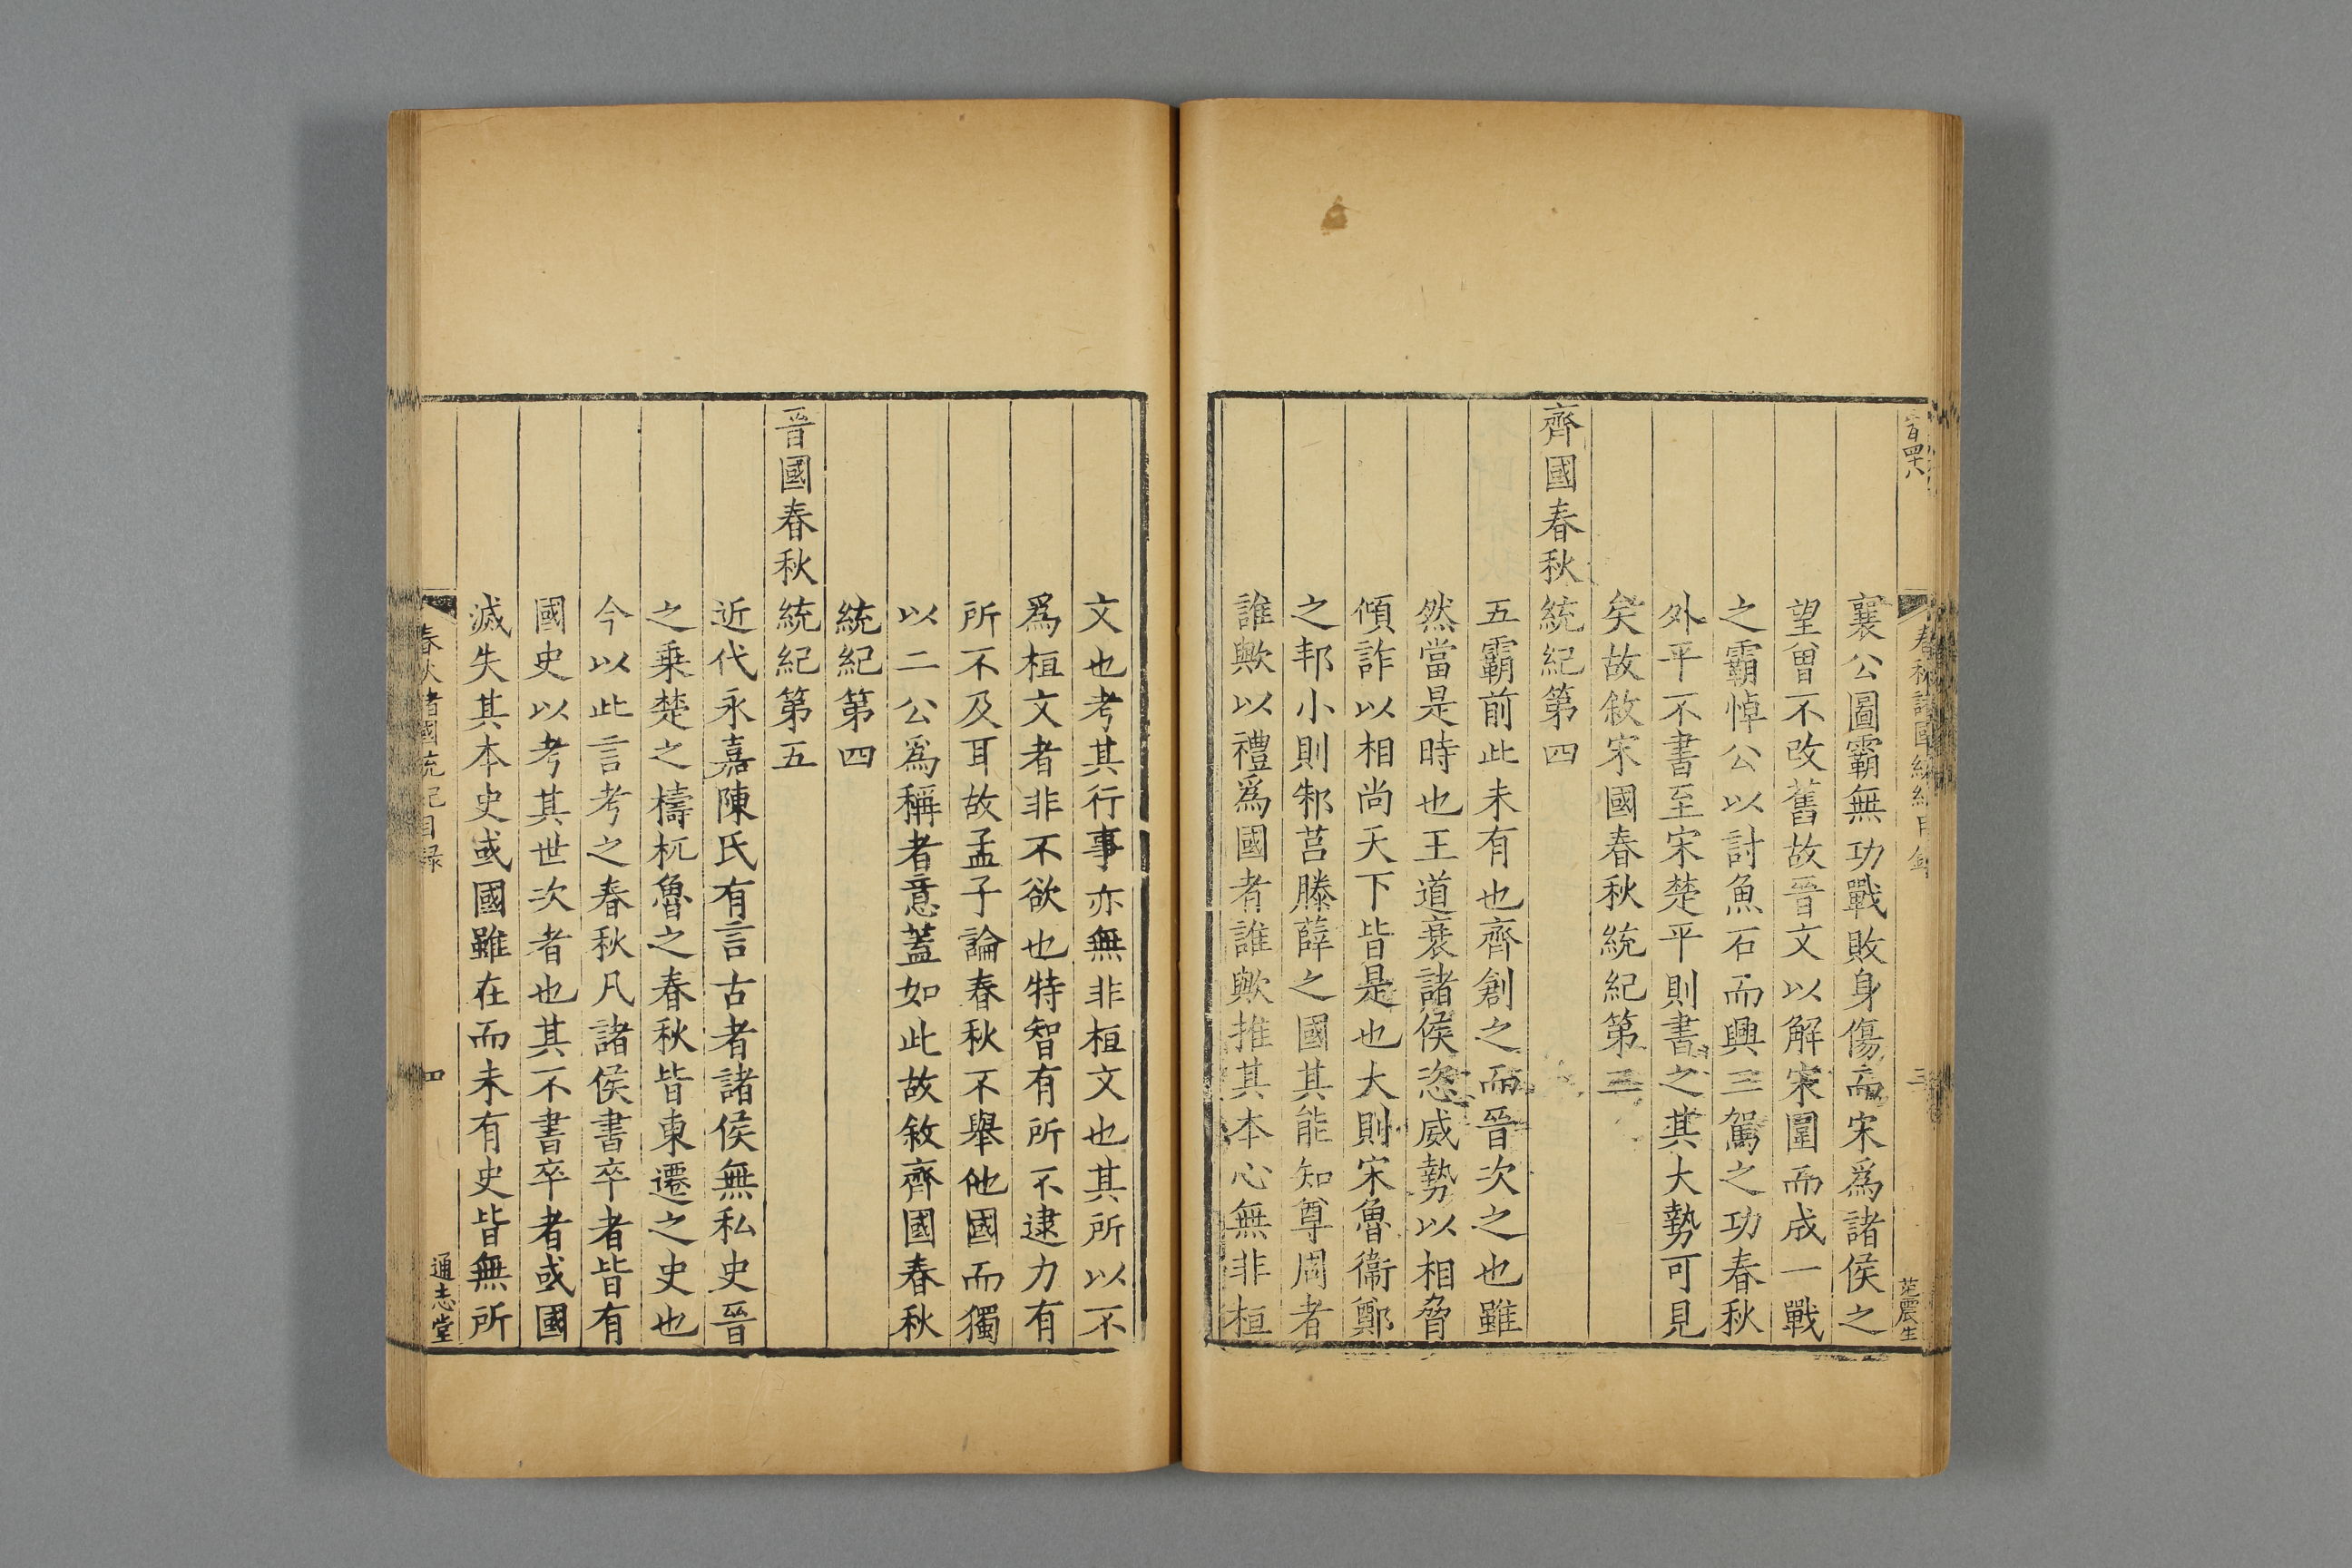 襄公圖霸無功戰敗身傷而宋爲諸侯之
望曾不改舊故晉文以解宋圍而成一戰
之霸悼公以討魚石而興三駕之功春秋
外平不書至宋楚平則書之其大勢可見
矣故敘宋國春秋統紀第三
齊國春秋統紀第四
五霸前此未有也齊創之而晉次之也雖
然當是時也王道衰諸侯恣威勢以相脅
傾詐以相尚天下皆是也大則宋魯衞鄭
之邦小則邾莒滕薛之國其能知尊周者
誰歟以禮爲國者誰歟推其本心無非桓
文也考其行事亦無非桓文也其所以不
爲桓文者非不欲也特智有所不逮力有
所不及耳故孟子論春秋不舉他國而獨
以二公爲稱者意蓋如此故敘齊國春秋
統紀第四
晉國春秋統紀第五
近代永嘉陳氏有言古者諸侯無私史晉
之乗楚之檮杌魯之春秋皆東遷之史也
今以此言考之春秋凡諸侯書卒者皆有
國史以考其世次者也其不書卒者或國
滅失其本史或國雖在而未有史皆無所
春秋諸國統紀目錄
四
通志堂